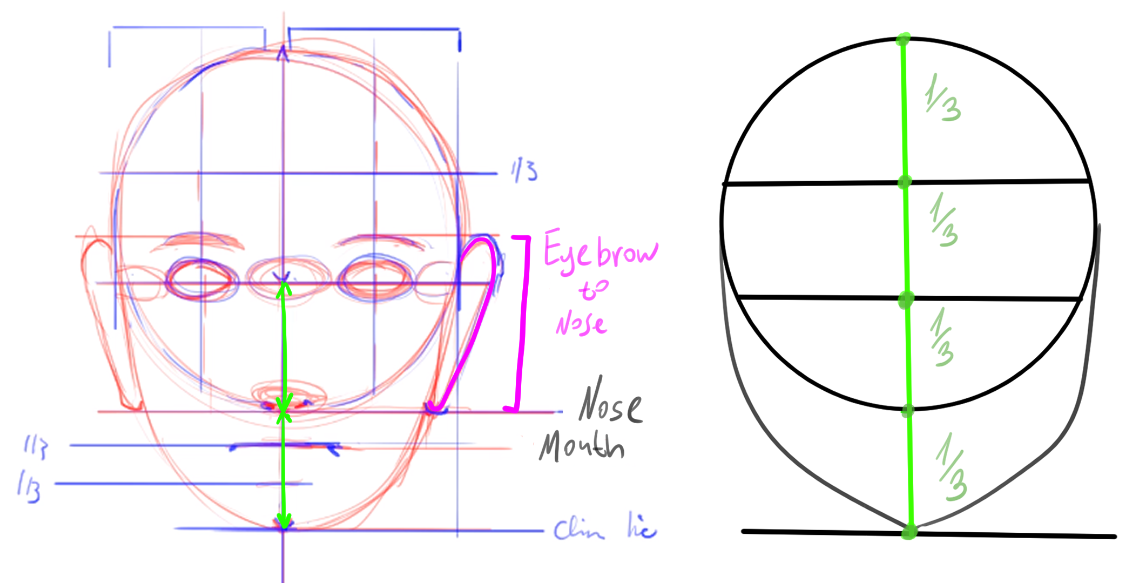 1/3
Eyebrow
to
Nose
Nose
Mouth
1/3
1/3
1/3
1/3
1/3
1/3